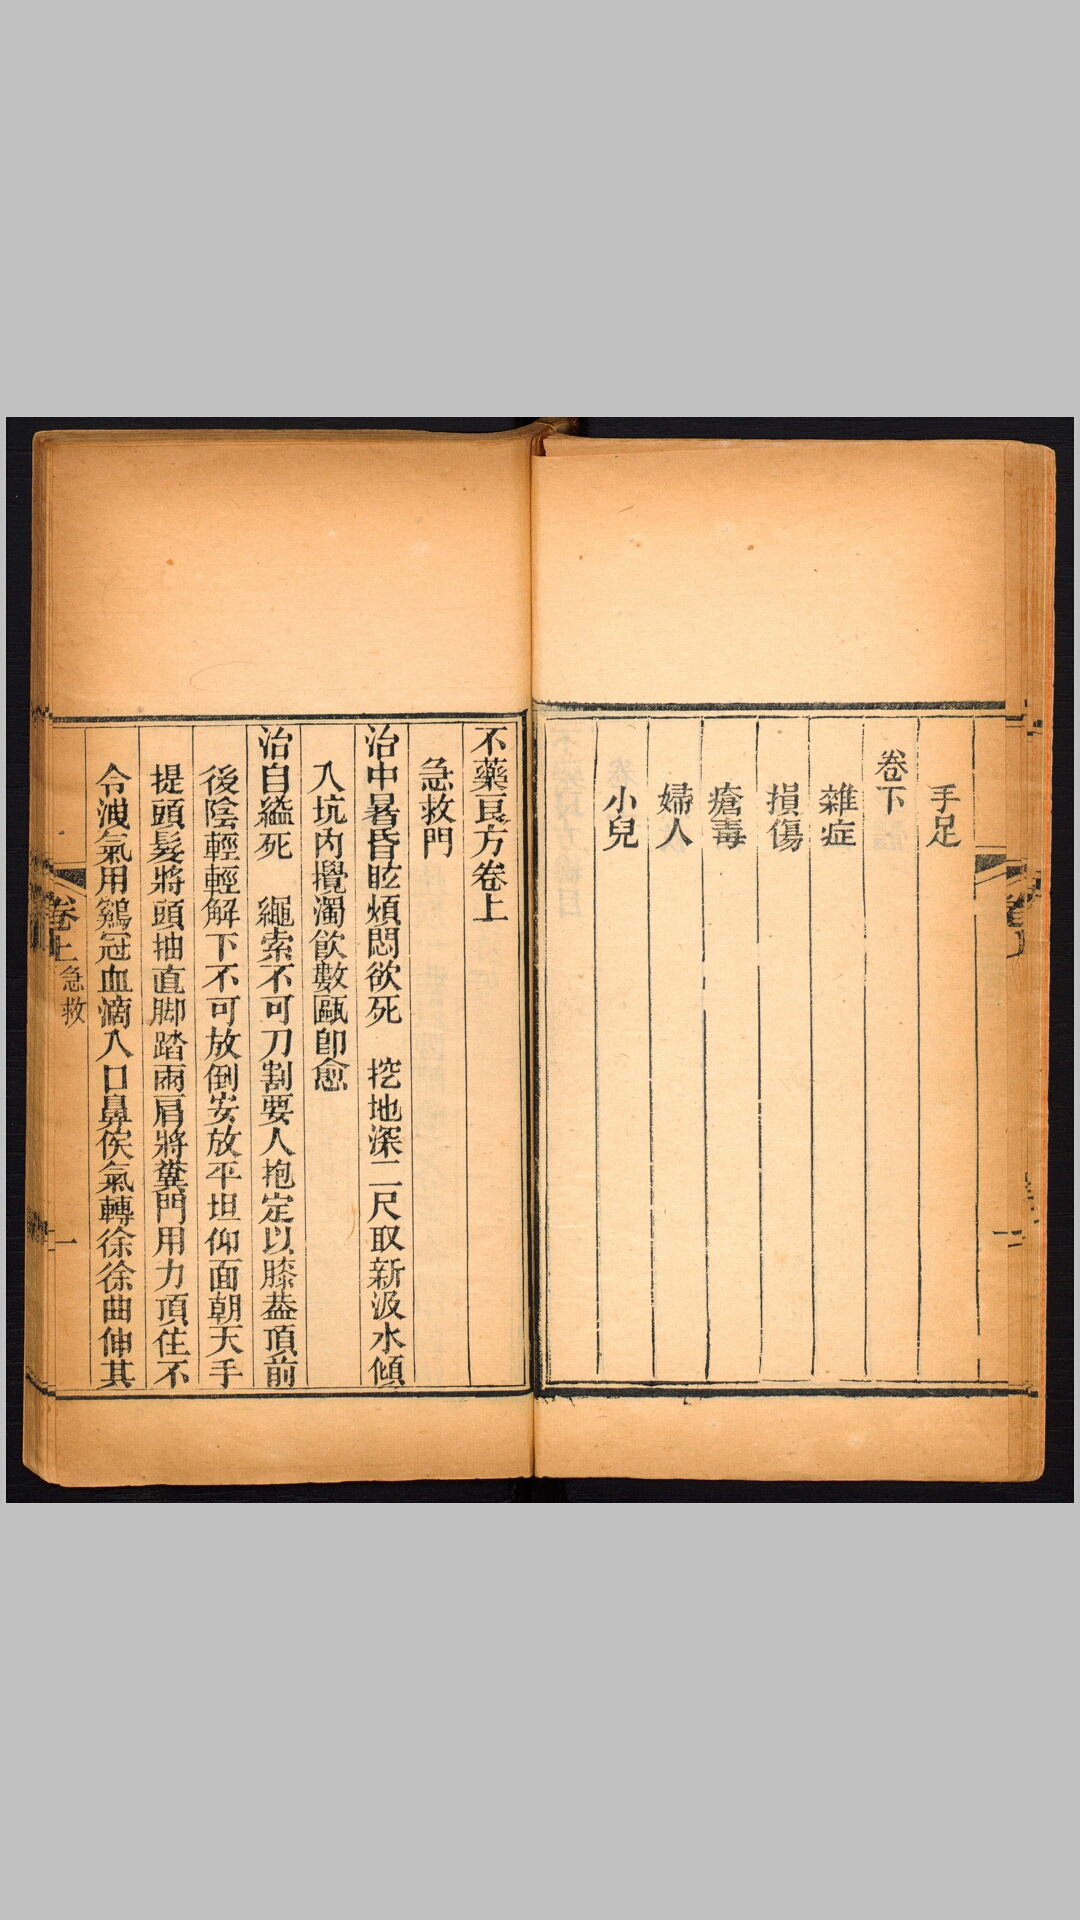 手足
卷下
雜症
損傷
瘡毒
婦人
小兒
不藥良方卷上
急救門
治中暑昏眩煩悶欲死　挖地深二尺取新汲水傾
入坑內攪濁飮數甌卽愈
治自縊死　繩索不可刀割要人抱定以膝葢頂前
後陰輕輕解下不可放倒安放平坦仰面朝天手
提頭髮將頭抽直脚踏兩肩將糞門用力頂住不
令洩氣用鷄冠血滴入口鼻俟氣轉徐徐曲伸其
卷上
急救
一